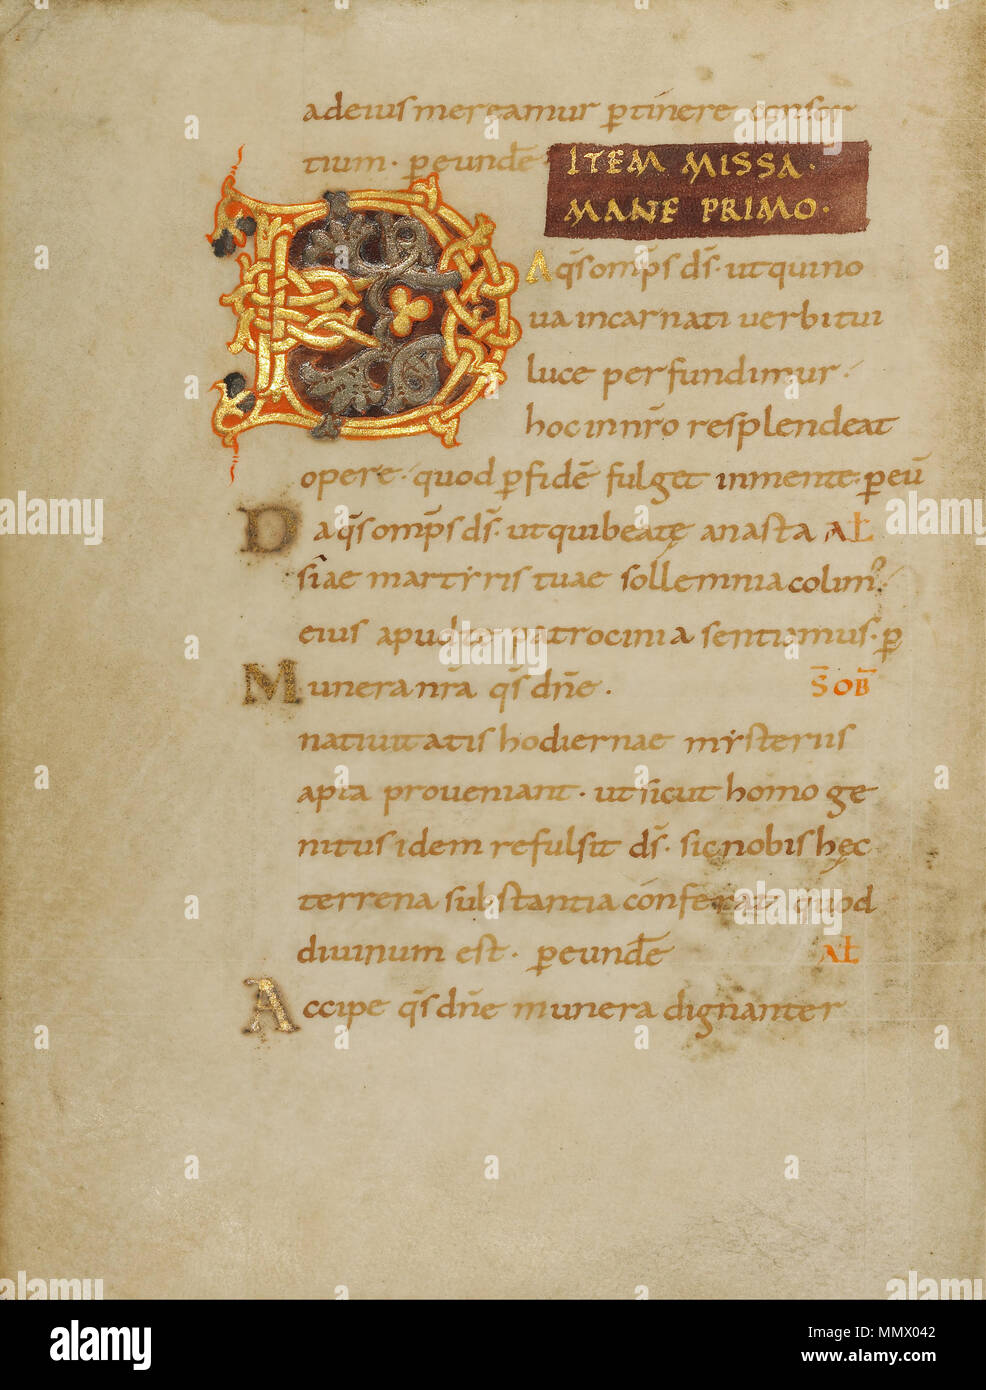 ad eius mereamur ꝑtinere consor
tium · ꝑ eundē
ITEM MISSA ·
MANE PRIMO ·
D A qs̄ omps̄ ds̄ · ut qui no
ua incarnati uerbi tui
luce perfundimur ·
hoc in nr̄o resplendeat
opere · quod ꝑ fidē fulget in mente · ꝑ eū
D a qs̄ omps̄ ds̄ · ut qui beatę anasta AŁ
siae martyris tuae sollemnia colim᾽ ·
eius apud te patrocinia sentiamus · ꝑ
M unera nr̄a qs̄ dn̄e · S̄ OB̄
natiuitatis hodiernae mysteriis
apta proueniant · ut sicut homo ge
nitus idem refulsit ds̄ · sic nobis hęc
terrena substantia conferat quod
diuinum est · ꝑ eundē AŁ
A ccipe qs̄ dn̄e munera dignanter
alamy
Image ID: MMX042
www.alamy.com